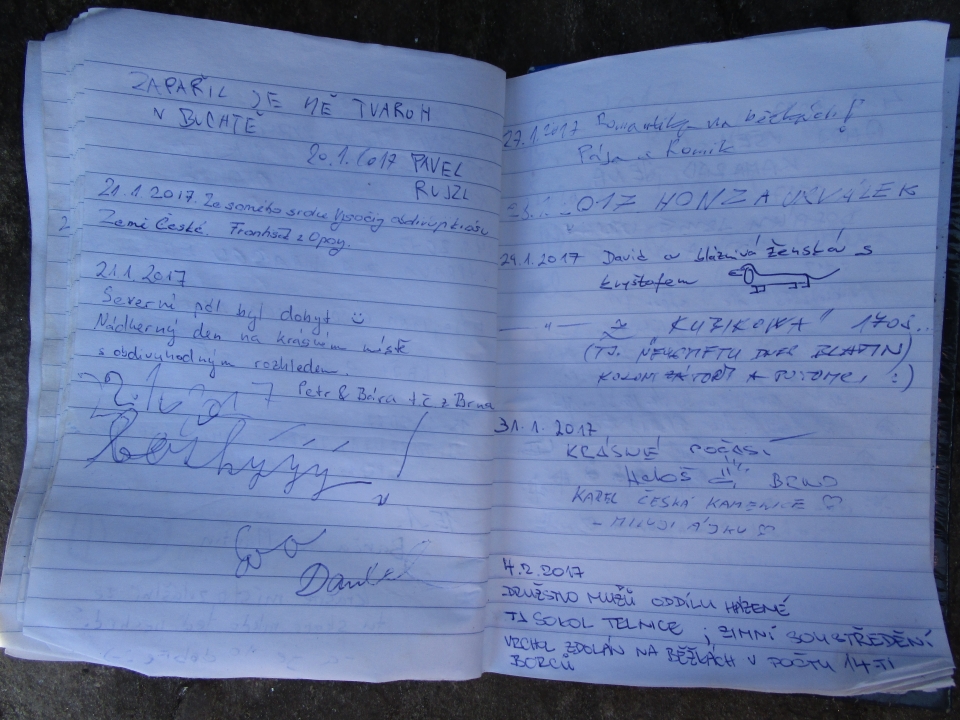 ZAPAŘIL JE MĚ TVAROH
V BUCHTĚ
20.1.2017 PAVEL
RUJZL
21.1.2017. Ze samého srdce Vysočiny obdivuji krásu
Země České. František z Opavy.
21.1.2017
Severní pól byl dobyt
Nádherný den na krásném místě
s obdivuhodným rozhledem.
Petr & Bára t.č. z Brna
Eva
Daniel
27.1.2017 Romantika na běžkách!
Pája a Romik
2017 HONZA
29.1.2017 David a bláznivá ženská s
kryštofem
— " —
(TJ.
KOLONIZÁTOŘI A POTOMCI :)
31.1.2017
KRÁSNÉ POČASÍ
BRNO
KAREL ČESKÁ KAMENICE ♡
- MILUJI ÁJKU ♡
4.2.2017
DRUŽSTVO MUŽŮ ODDÍLU HÁZENÉ
TJ SOKOL TELNICE ; ZIMNÍ SOUSTŘEDĚNÍ
VRCHOL ZDOLÁN NA BĚŽKÁCH V POČTU 14TI
BORCŮ